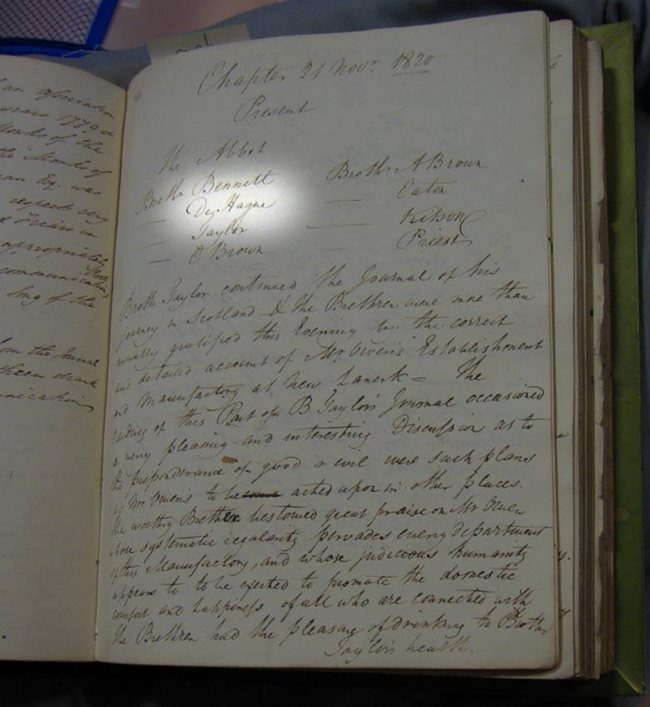 an association
Monks of the
the Monks of
Esq. was
respect very
Friars in
appropriate
communication
Song of the
from the Journal
drank
Chapter 21 Novr. 1820
Present
The Abbot
Brothr Bennett
— De Hague
— Taylor
— O Brown
Brothr A Brown
— Eaton
— Kitson
— Priest
Brothr Taylor continued the Journal of his
journey in Scotland & the Brethren were more than
usually gratified this Evening by the correct
and detailed account of Mr Owen's Establishment
and Manufactory at New Lanark = The
reading of this Part of B Taylor's Journal occasioned
a very pleasing and interesting Discussion as to
the preponderance of good or evil were such plans
as Mr Owen's to be acted upon in other places.
The worthy Brethren bestowed great praise on Mr Owen
whose systematic regularity pervades every department
of this Manufactory, and whose judicious humanity
appears to to be exerted to promote the domestic
comfort and happiness of all who are connected with
The Brethren had the pleasure of drinking to Brother
Taylor's health.